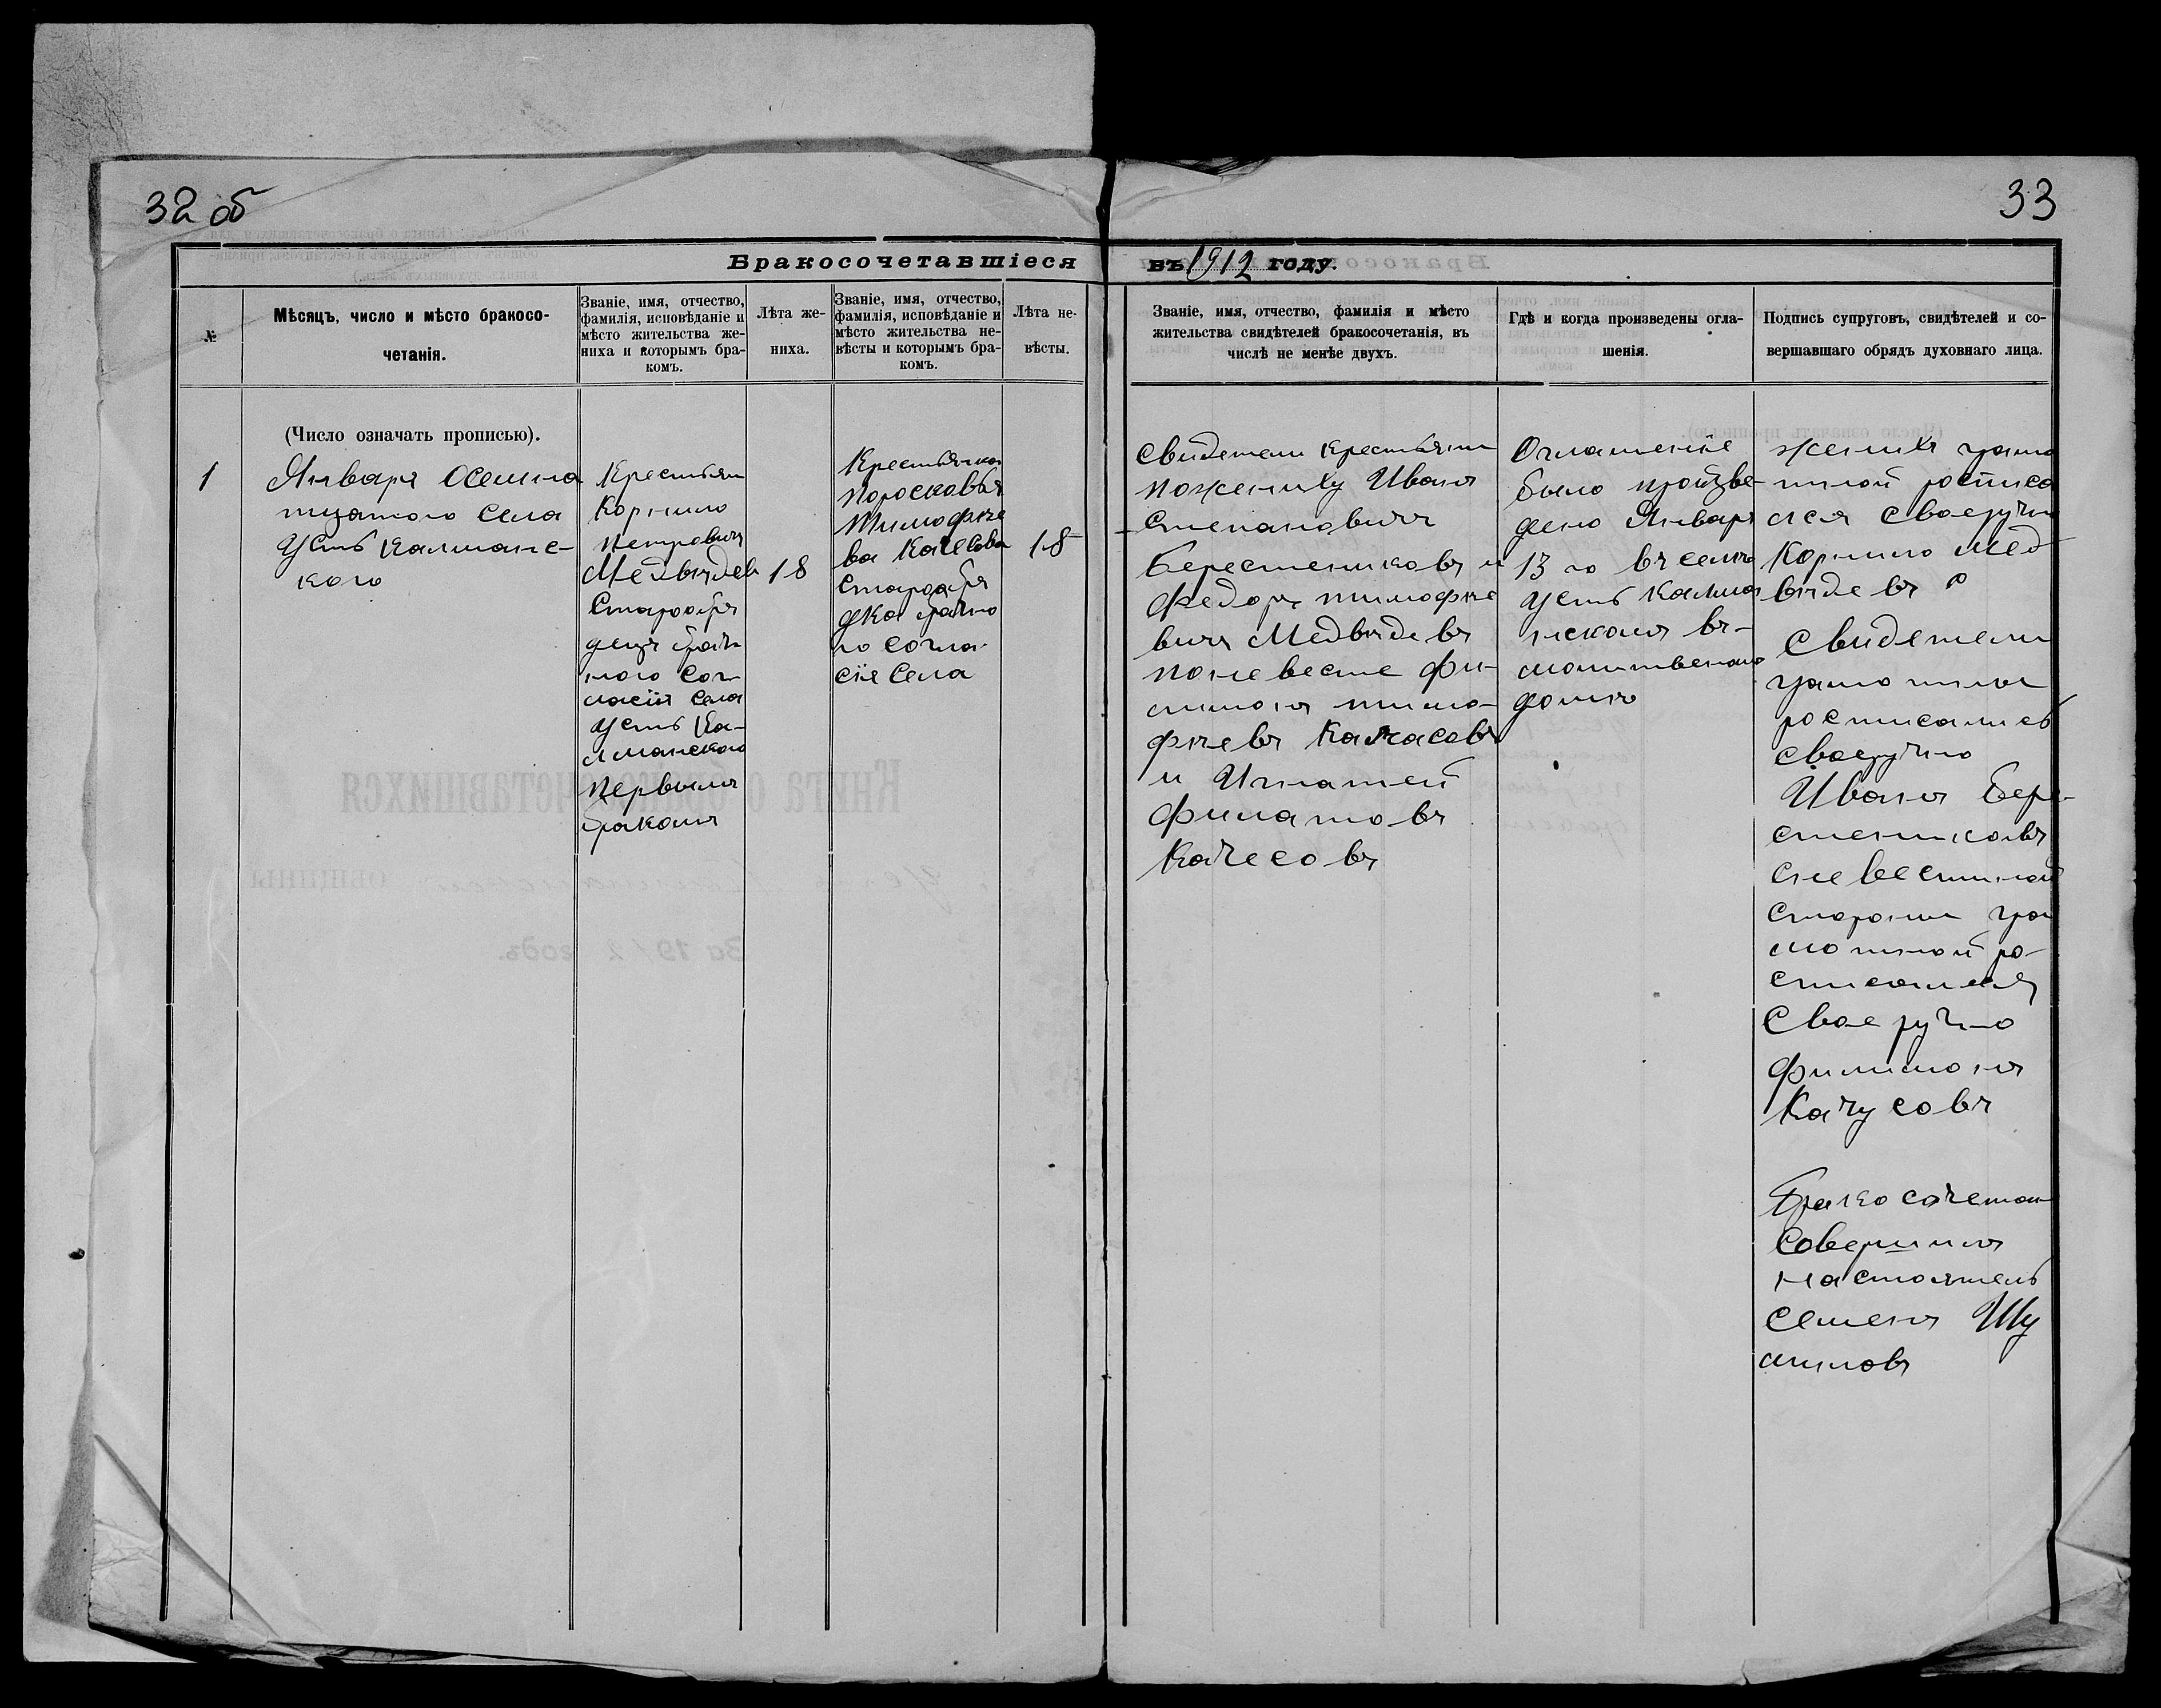 32 об
33
Бракосочетавшіеся
въ 1912 году.
№
Мѣсяцъ, число и мѣсто бракосо-
четанія.
Званіе, имя, отчество,
фамилія, исповѣданіе и
мѣсто жительства же-
ниха и которымъ бра-
комъ.
Лѣта же-
ниха.
Званіе, имя, отчество,
фамилія, исповѣданіе и
мѣсто жительства не-
вѣсты и которымъ бра-
комъ.
Лѣта не-
вѣсты.
Званіе, имя, отчество, фамилія и мѣсто
жительства свидѣтелей бракосочетанія, въ
числѣ не менѣе двухъ.
Гдѣ и когда произведены огла-
шенія.
Подпись супруговъ, свидѣтелей и со-
вершавшаго обрядъ духовнаго лица.
(Число означать прописью).
1
Января Осемна
тцатого Села
Усть Калманс-
кого
Крестьян
Корнило
петровичъ
Медвѣдев
Старообря
децъ брач
ного сог
ласія села
Усть Ка-
лманского
первымъ
бракомъ
18
Крестьянка
поросковья
Тимофѣе
ва Качесова
Старообря
дка брачно
го согла-
сія Села
18
Свидетели крестьяни
пожениху Иванъ
Степановичъ
Берестениковъ и
Федоръ тимофѣе
вичъ Медвѣдевъ
поневесте Фи-
лимонъ тимо-
фѣевъ Качасовъ
и Игнатей
Филатовъ
Качесовъ
Оглашеніе
было произве-
дено Января
13 го въ селѣ
Усть Калма
нскомъ въ-
молитвеномъ
домѣ
женихъ грамо
тной росписа
лся своеручно
Корнило Мед
вѣдевъ
Свидетели
грамотныи
росписались
своеручно
Иванъ Бере-
стениковъ
сневестиной
стороны гра
мотной ро-
списался
Своеручно
Филимонъ
Качусовъ
Бракосочетан
Совершилъ
настоятель
Семенъ Шу
миловъ